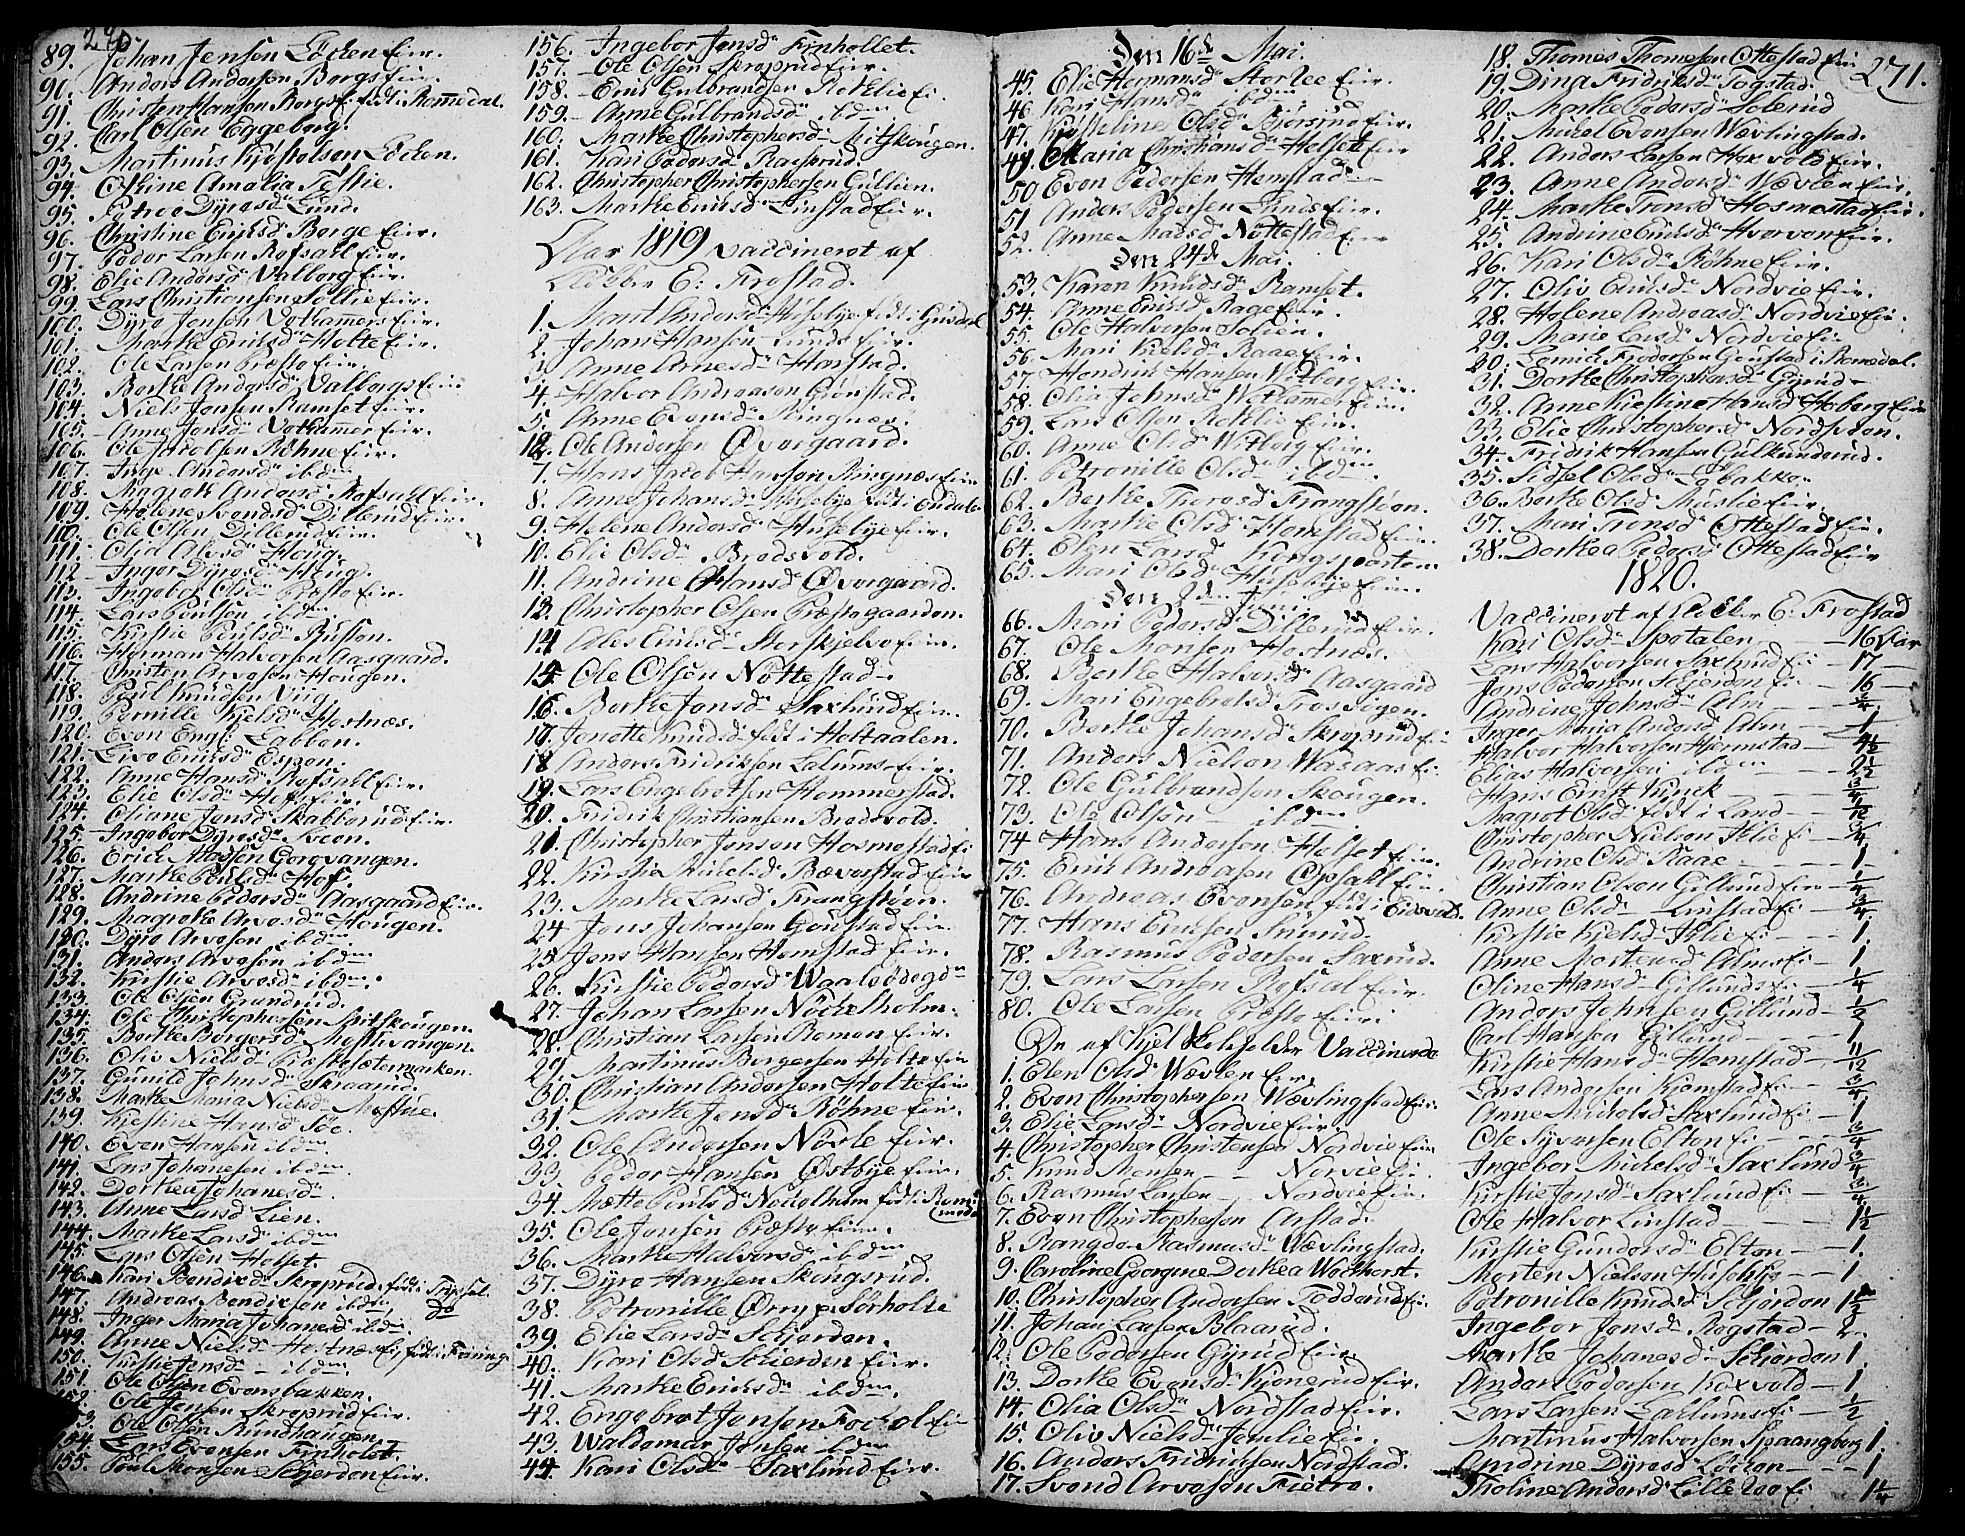 270.
89. Johan Jensen Löcken Eir.
90. Anders Andersen Borgs Eir.
91. Christen Hansen Borgs Ei. född i Romedal.
92. Carl Olsen Eggeberg.
93. Martinus Kjöstolsen Löcken.
94. Othine Amalia
95. Dyresd. Lund.
96. Christine Eriksd. Borge Eir.
97. Peder Larsen Rofsahl Eir.
98. Elie Andersd. Valborg Eir.
99. Lars Christiansen Sollie Eir.
100. Dyre Jensen Votkamers Eir.
101. Marthe Eriksd. Holte Eir.
102. Ole Larsen Præste Eir.
103. Berthe Andersd. Valborgs Eir.
104. Niels Jensen Ramset Eir.
105. Anne Jensd. Votkammer Eir.
106. Ole Röhne Eir.
107. Inge. Andersd. ibdm
108. Magrethe Andersd. Rofsahl Eir.
109. Helene Svendsd. Dillerud Eir.
110. Ole Olsen Dillerud Eir.
111. Olia Alvsd. Houg.
112. Inger Dyresd. Houg.
113. Ingebor Olsd. Præste Eir.
114. Lars Poulsen ibdm
115. Kirstie Poulsd. Busson.
116. Herman Halvorsen Aasgaard.
117. Christen Arvesen Hougen.
118. Poul Knudsen Viig.
119. Pernille Kielsd. Hostnæs.
120. Even Engb. Labben.
121. Live Eriksd. Espen.
122. Anne Hansd. Rofsahl Eir.
123. Elie Olsd. Hofs Eir.
124. Oliane Jensd. Skabberud Eir.
125. Ingebor Dyresd. Kveen.
126. Erich Gorgvangen.
127. Marthe Poulsd. Hof.
128. Andrine Pedersd. Aasgaard Eir.
129. Magrethe Arvesd. Hougen.
130. Dyre Arvesen ibdm
131. Anders Arvesen ibdm
132. Kirstie Arvesd. ibdm.
133. Ole Olsen Grundrud.
134. Ole Christophersen Mitskougen.
135. Berthe Borgersd. Mosthvangen.
136. Oliv Nielsd. Præstesætermarken.
137. Gunild Johnsd. Skraarud.
138. Marthe Maria Nielsd. Mostue.
139. Kjestine Hansd. Söe.
140. Even Hansen ibdm
141. Lars Johanesen ibdm
142. Dorthea Johanesd.
143. Anne Larsd. Lien.
144. Marthe Larsd. ibdm
145. Lars Olsen Holset.
146. Kari Bendixsd. Skreprud, född i Trysil.
147. Andreas Bendixsen ibdm do
148. Inger Maria Johanesd. ibdm.
149. Anne Nielsd. Hostnæs Ei, född i
150. Kirstie Jensd. ibdm
151. Ole Olsen Evensbakken.
152. Ole Jensen Skreprud Eir.
153. Ole Olsen Rundhaugen.
154. Lars Evensen Finholet.
155. Poul Monsen Schjerden Eir.
156. Ingebor Jensd. Finhollet.
157. Ole Olsen Skreprud Eir.
158. Erich Gulbrandsen Rothlie Ei.
159. Anne Gulbrandsd. ibdm
160. Marthe Christophersd. Mitskougen.
161. Kari Pedersd. Raasrud.
162. Christopher Christophersen Gullien.
163. Marthe Eriksd. Linstad Eir.
Aar 1819 vaccineret af
Klokker E: Frostad.
1. Marit Andersd. Husebye född i Gusdal
2. Johan Hansen Lunds Eir.
3. Anne Arnesd. Harstad.
4. Halvor Andreasen Grönstad.
5. Anne Evensd. Ringnæs.
12. Ole Andersen Övergaard.
7. Hans Jacob Hansen Ringnæs Eir
8. Anne Johansd. Husebye född i Endalen
9. Helene Andersd. Husebye Eir.
10. Elie Olsd. Bredsvold.
11. Andrine Hansd. Övergaard.
13. Christopher Olsen Præstegaarden.
14. Ales Eriksd. Storskjelve Eir.
15. Ole Olsen Nöttestad.
16. Berthe Jensd. Saxlund Eir.
17. Jenette Knudsd. född i Holtaalen.
18 Anders Fridriksen Lalums Eir.
19. Lars Engebretsen Hommerstad.
20. Fridrik Christiansen Bredsvold.
21. Christopher Jensen Hosmestad Ei
22. Kirstie Mikelsd. Bæverstad Eir
23. Marthe Larsd. Frangstöen.
24. Jens Johansen Gönstad Eir.
25. Jens Hansen Hemstad Eir.
26. Kirstie Pedersd. Waaleödegd.
27. Johan Larsen Nöckelholm.
28. Christian Larsen Romen Eir.
29. Martinus Borgersen Holte Eir
30. Christian Andersen Holte Eir
31. Marthe Jensd. Röhne Eir.
32. Ole Andersen Nöcle Eir.
33. Peder Hansen Östbye Eir.
34. Mætte Poulsd. Nockolhum född i
35. Ole Jensen Præste Eir.
36. Marthe Halvorsd. ibdm
37. Dyre Hansen Skougsrud.
38. Petronille Sörholte
39. Elie Larsd. Schjerden.
40. Kari Olsd. Schierden Eir.
41. Marthe Ericksd. ibdm
42. Engebret Jensen Fockol Ei
43. Waldemar Jensen ibdm
44. Kari Olsd. Saxlund Eir.
Den 16de Mai.
45. Elie Hermansd. Storlee Eir.
46. Kari Hansd. ibdm
47. Kjösteline Olsd. Bjørsrud Eir.
49. Maria Christiansd. Helset Eir
50 Even Pedersen Hemstad
51 Anders Pedersen Lunds Eir.
52. Anne Madsd. Nöttestad Eir
Den 24de Mai.
53. Karen Knudsd. Ramset.
54. Anne Eriksd. Rage Eir.
55. Ole Halvorsen Solien.
56. Mari Kielsd. Raae Eir.
57. Hendrik Hansen Witberg Eir.
58. Olia Johnsd. Wetkamer Eir.
59. Lars Olsen Rothlie Eir.
60. Anne Olsd. Witberg Eir.
61. Petronille Olsd. ibdm
62. Berthe Thoresd. Frangstöen.
63. Marthe Olsd. Horrestad Eir.
64. Elen Larsd. Kongsparten.
65. Mari Olsd. Husebye Eir.
Den 2den Juni.
66. Mari Pedersd. Dillerud Eir.
67. Ole Monsen Hostnæs.
68. Berthe Halvorsd. Aasgaard
69. Mari Engebretsd. Trosvigen.
70. Berthe Johansd. Skreprud Ei
71. Anders Nielsen Waraas Ei.
72. Ole Gulbrandsen Skougen.
73. Ole Olsen ibdm
74 Hans Andersen Helset Eir.
75. Erik Andreasen Opsahl Eir.
76. Andreas Evensen född i Eidsvold.
77. Hans Eriksen Sünrüd.
78. Rasmus Pedersen Saxrud.
79. Lars Larsen Rofsal Eir.
80. Ole Larsen Præste Eir.
De af Kjel Vaccinerede
1. Elen Olsd. Wævlen Eir.
2. Even Christophersen Wævlingstad Eir.
3. Elie Larsd. Nordvie Eir.
4. Christopher Christensen Nordvie Eir
5. Knud Monsen Norvie Ei.
6. Rasmus Larsen Nordvie Eir.
7. Even Christophersen Arstad.
8. Rangdo Rasmusd. Wævlingstad.
9. Caroline Georgine Dorthea Wockherst.
10. Christopher Andersen Todderud Eir.
11. Johan Larsen Blaarud.
12. Ole Pedersen Gjerud Eir.
13. Dorthe Evensd. Kjonerud Eir.
14. Olia Olsd. Nordstad Eir.
15. Oliv Nielsd. Jonlie Ei.
16. Anders Fridriksen Nordstad.
17. Svend Arvesen Fietre.
271.
18. Thomes Thomesen Ottestad Eir
19. Dina Fridriksd. Togstad.
20. Marthe Pedersd. Solerud
21. Mikel Evensen Wævlingstad.
22. Anders Larsen Hexvold Eir.
23. Anne Andersd. Wævlen Eir.
24. Marthe Tronsd. Hosmestad Eir.
25. Andrine Eriksd. Hverven Eir.
26. Kari Olsd. Röhne Eir.
27. Oliv Eriksd. Nordvie Eir.
28. Helene Andreasd. Nordvie Eir.
29. Marie Larsd. Nordvie Ei.
20: Lomich Fredersen Gonstad i Romedal.
31. Dorthe Christophersd. Gjerud
32. Anne Kiestine Hansd. Hoberg Eir
33. Elie Christophersd. Nordsveen.
34. Fridrik Hansen Gulkundrud.
35. Sidsel Olsd. Löbakke.
36. Berthe Olsd. Muslie Eir.
37. Mari Tronsd. Ottestad Eir.
38. Dorthea Pedersd. Ottestad Eir
1820.
Vaccineret af Klokker E: Frostad
Kari Olsd. Spetalen — 16 Aar
Lars Halvorsen Saxlund Ei — 17 —
Jens Pedersen Schjerden Ei — 16 —
Andrine Johnsd. Alm — 3/4
Inger Maria Andersd. Alm — 1
Halvor Halvorsen Hjermstad — 4 1/2
Elias Halvorsen ibdm — 2 1/2
Hans Ernst Vinck — 3/4
Magret Olsd. född i Land — 1/12
Christopher Nielsen Ihlie Ei — 3/4
Andrine Olsd. Raae — 1.
Christian Olsen Gillund Eir — 1/4
Anne Olsd. Linstad Ei — 3/4
Kirstie Kielsd. Ihlie Ei — 1.
Anne Mortensd. Alms Ei — 1.
Oline Hansd. Gillunds Ei — 1/4
Anders Johnsen Gillund — 1/2
Carl Hansen Gillund — 1
Kirstie Hansd. Hemstad — 11/12
Lars Andersen Kjemstad Ei — 3/4
Anne Mikelsd. Saxlund Ei — 1
Ole Syversen Elton Ei — 3/4
Ingebor Mickelsd. Saxlund 3/4
Kirstie Jensd. Saxlund Ei — 3/4
Ole Halvor Linstad — 1 1/2
Kirstie Gundersd. Elton — 1.
Morten Nielsen Husebye — 1
Petronille Knudsd. Schjerden 1 1/2
Ingebor Jensd. Rogstad — 2.
Marthe Johanesd. Schjerden 1.
Anders Pedersen Koxvold — 1
Lars Larsen Lallums Ei — 1/2
Martinus Halvorsen Spaangberg 1.
Andrine Dyresd. Löcken — 1
Tholine Andersd. Lille Ree Ei 1 1/4